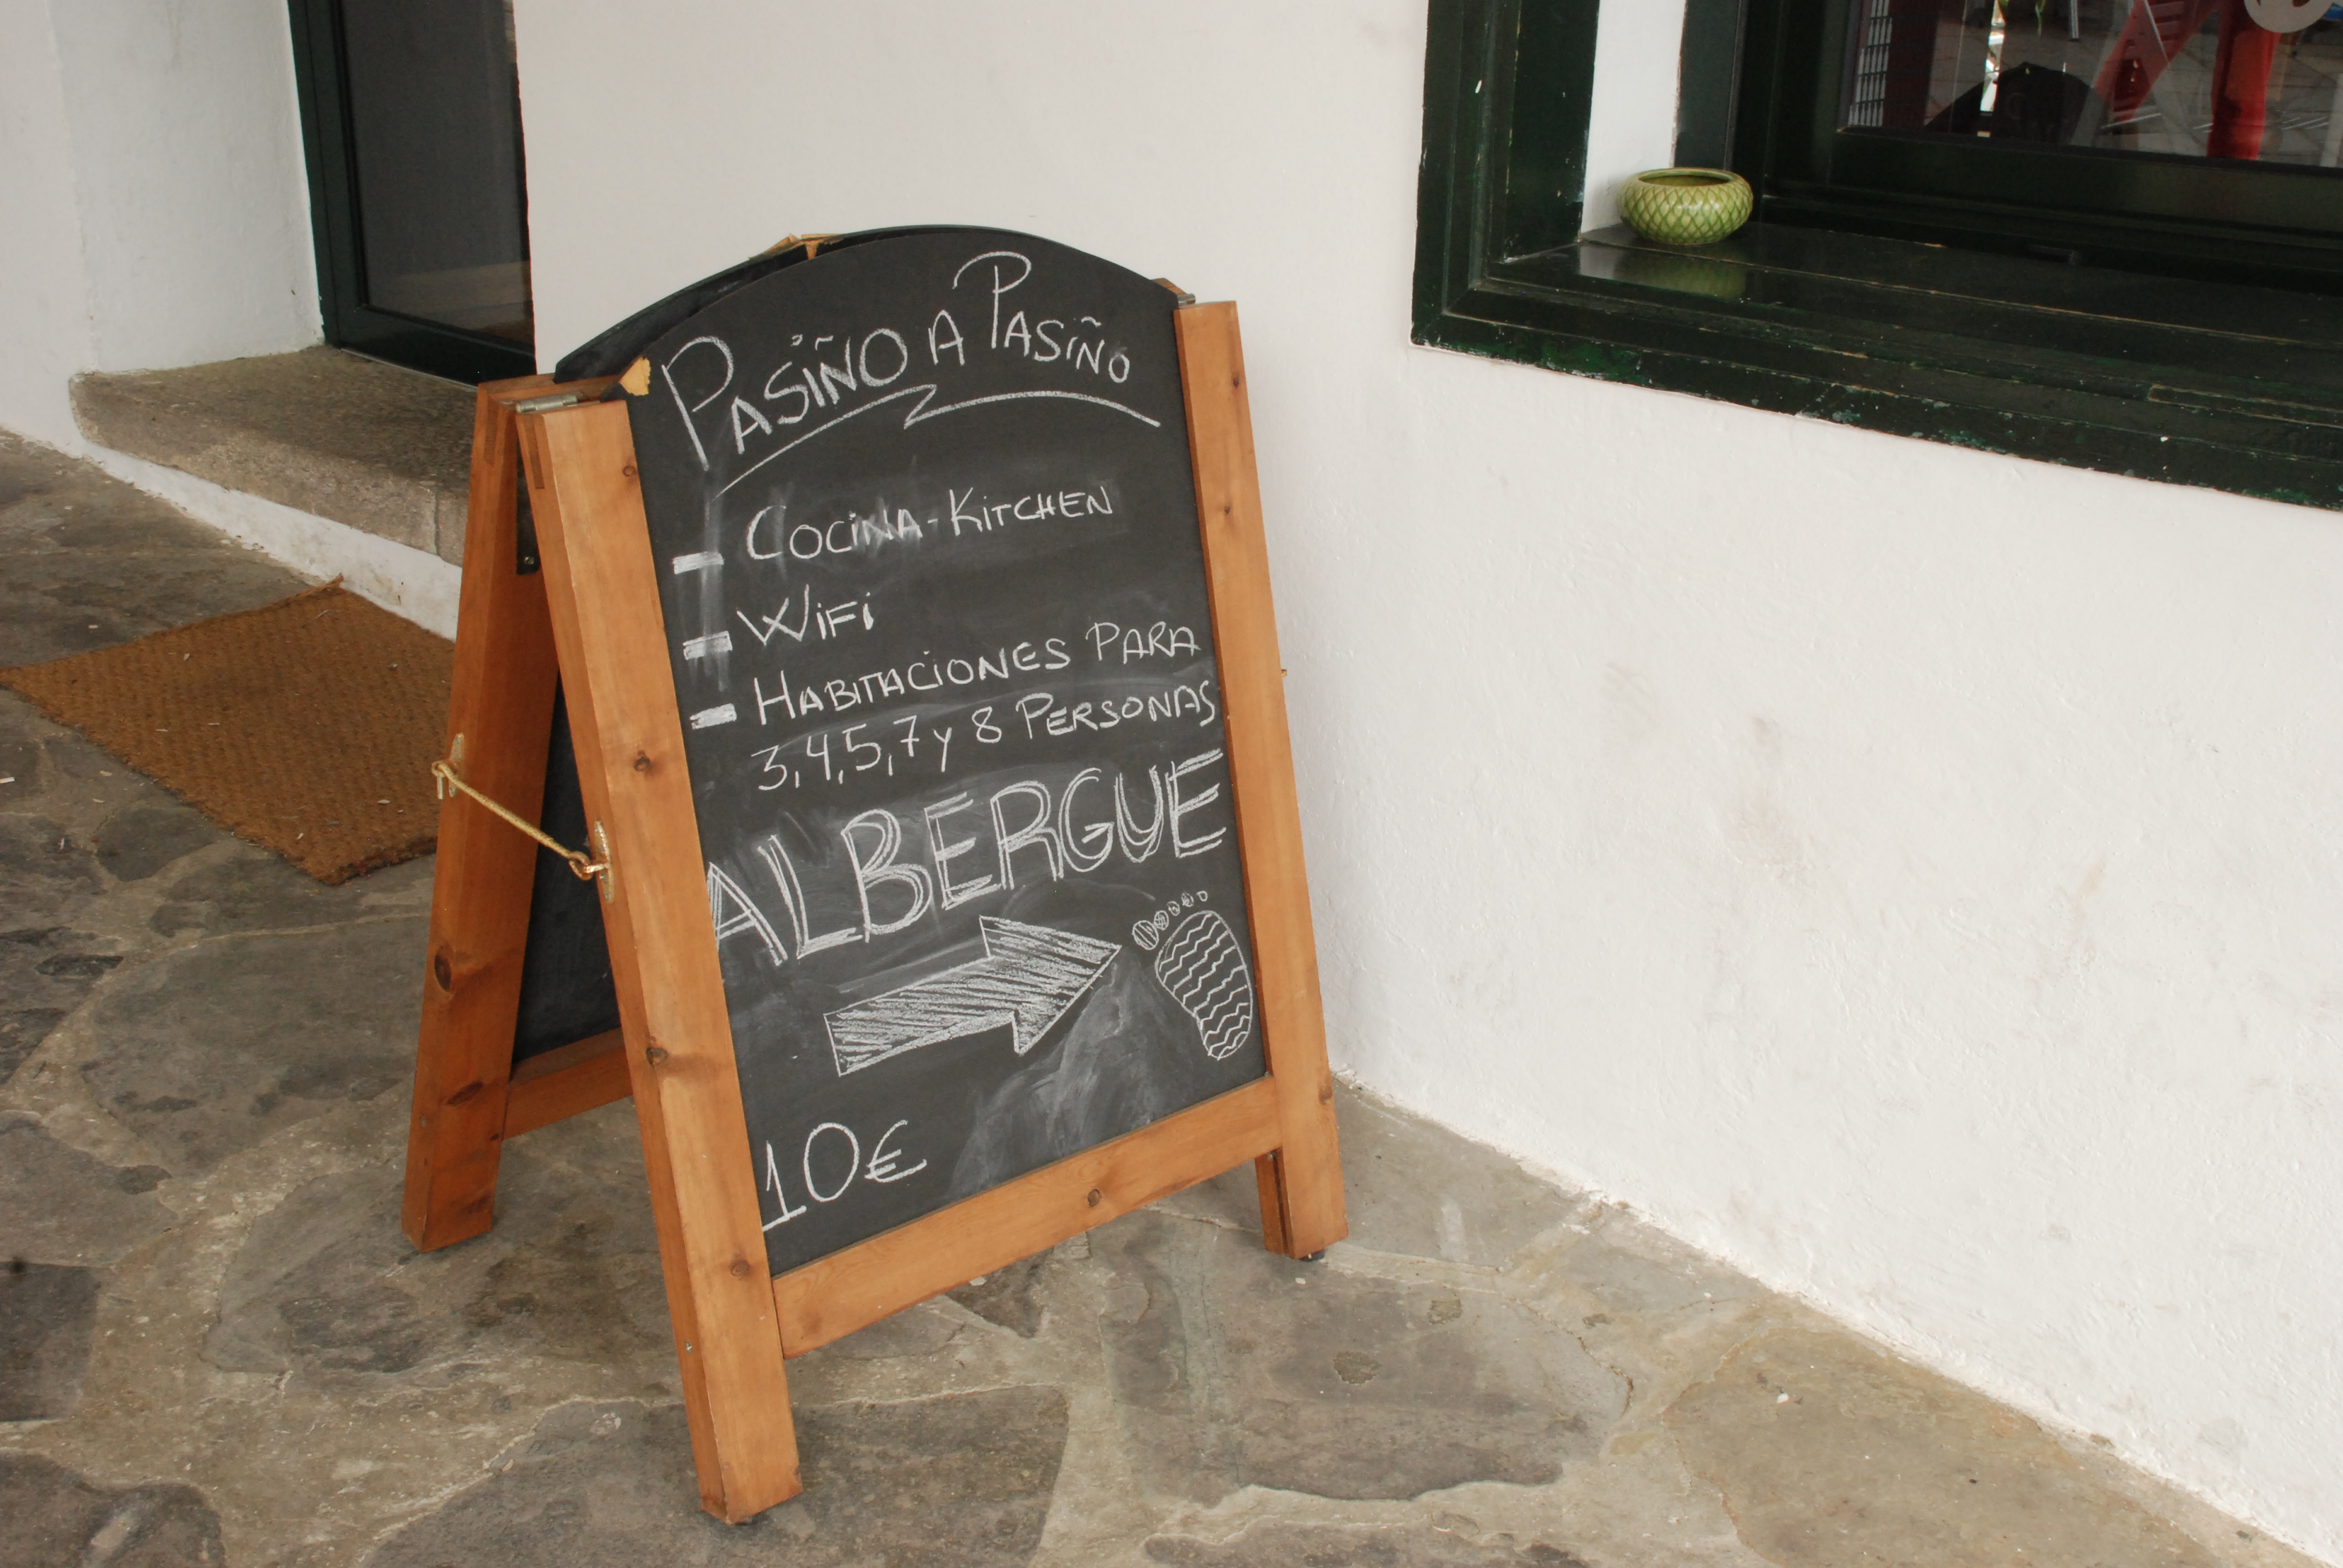 PASIÑO A PASIÑO
- COCINA - KITCHEN
- WiFi
- HABITACIONES PARA
3, 4, 5, 7 y 8 PERSONAS
ALBERGUE
10€